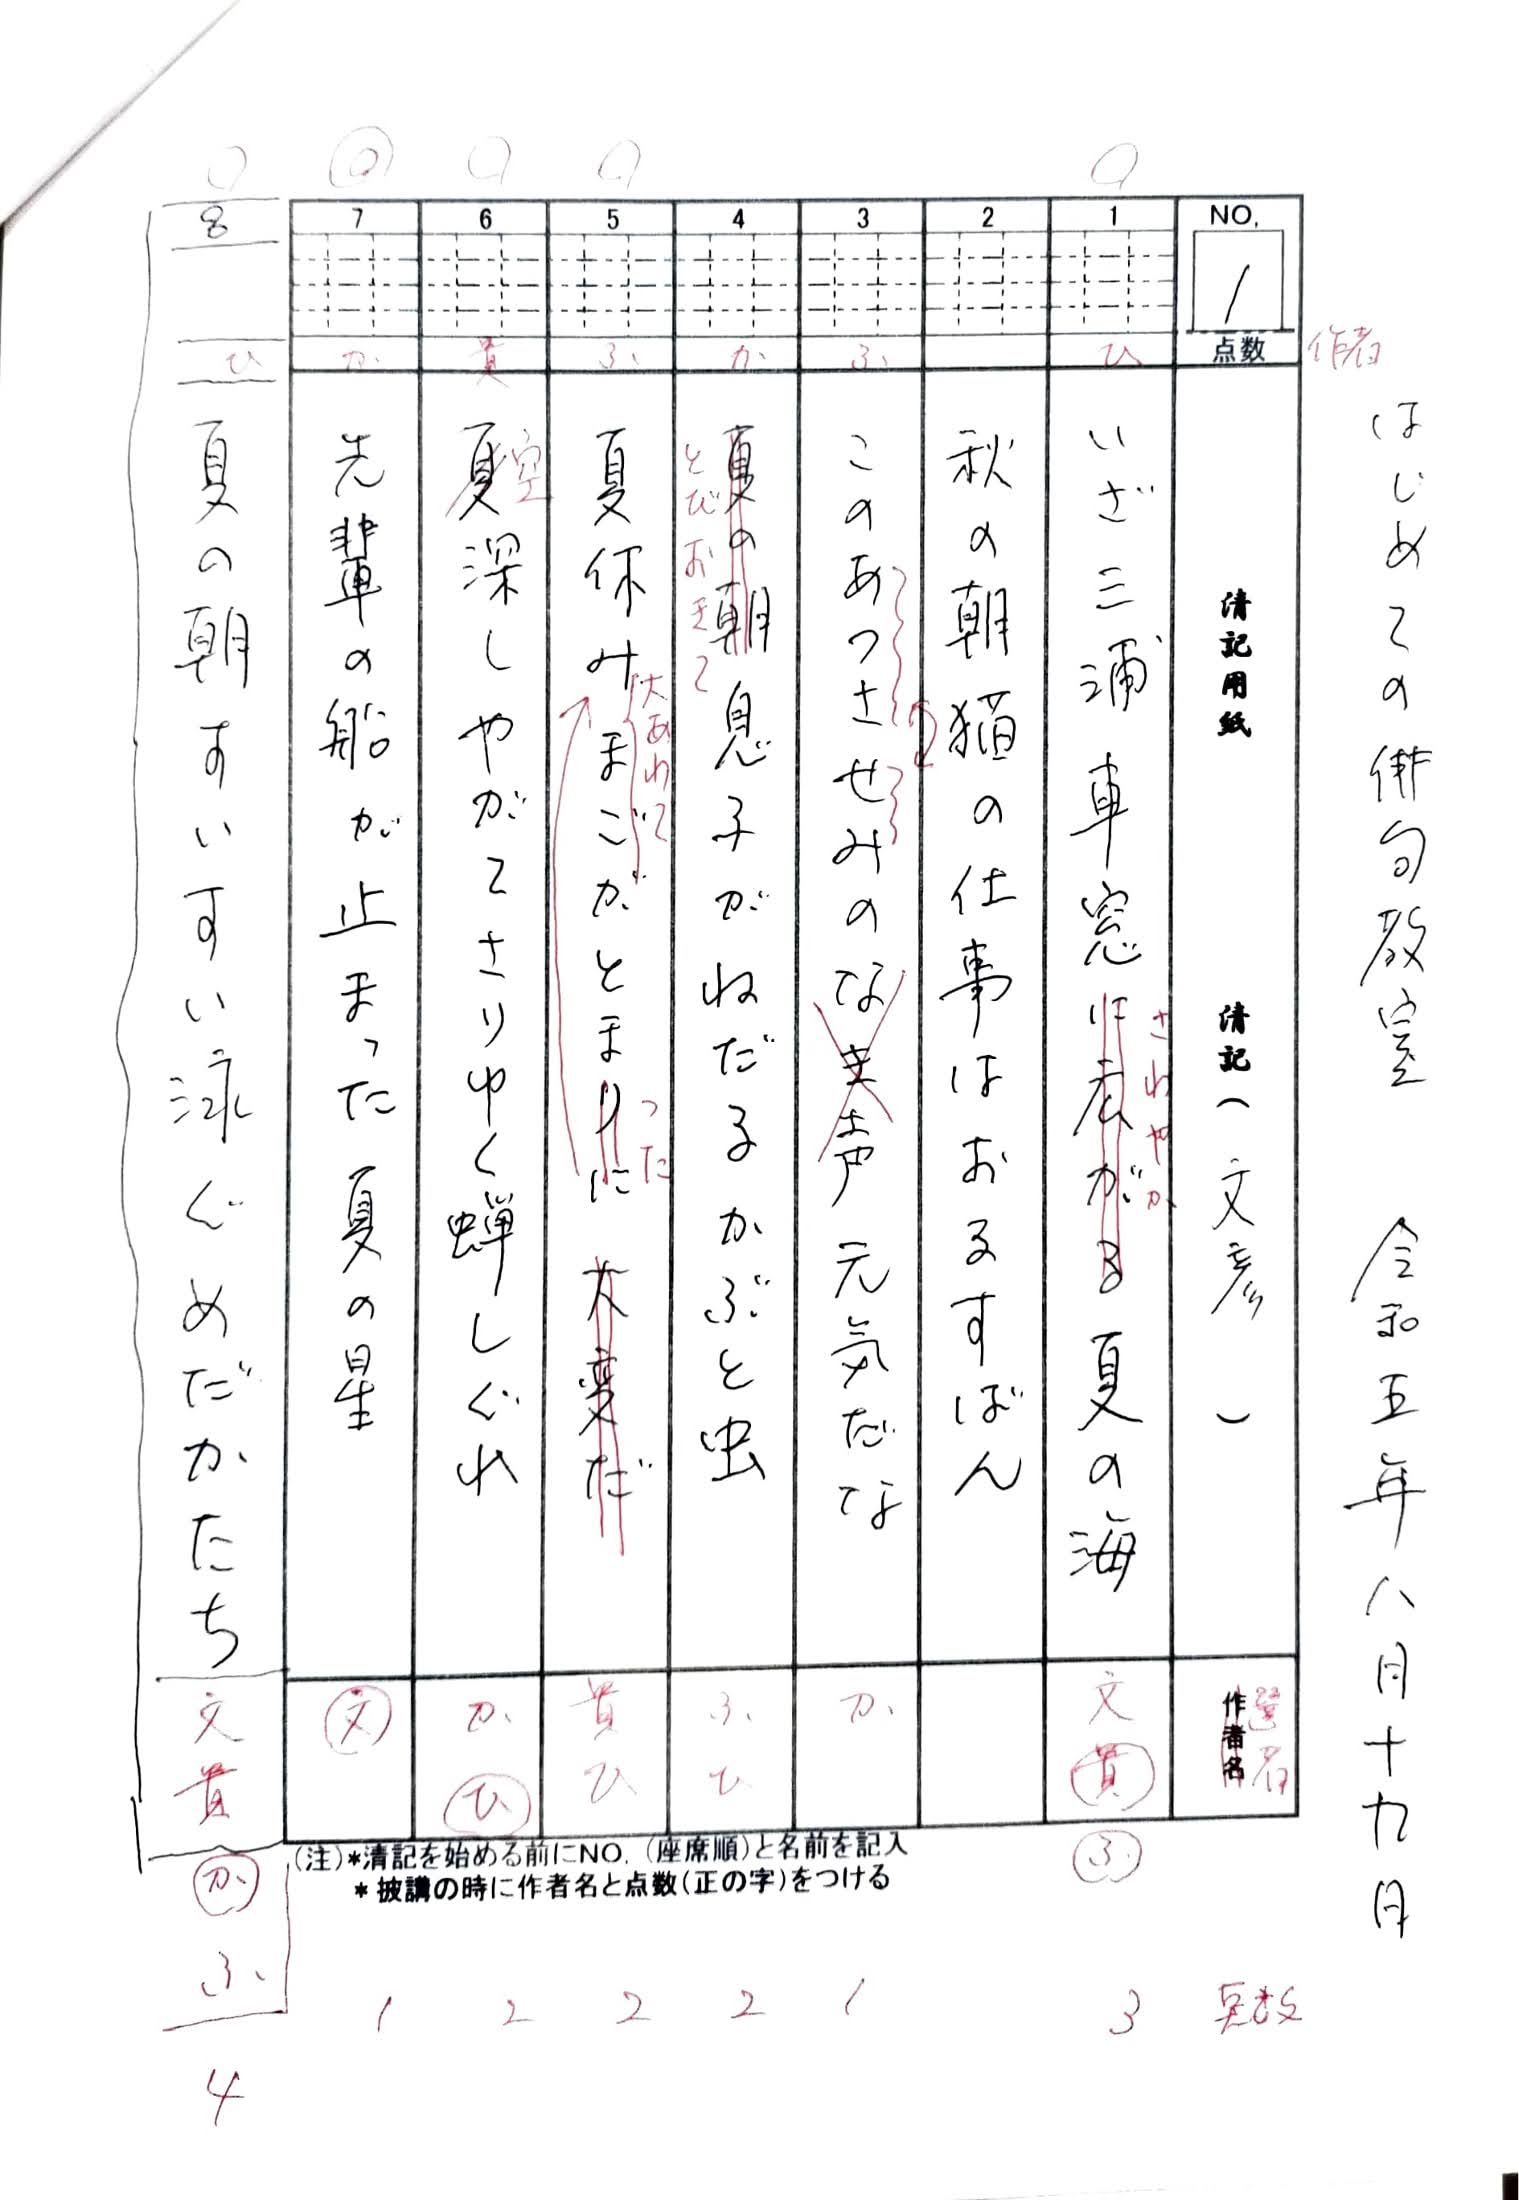 はじめての俳句教室 令和五年八月十九日
作者
NO.
1
点数
清記用紙 清記(文彦)
作者名
選者
点数
1
ひ
いざ三浦 車窓に広がる 夏の海
さわやか
文
貴
ふ
3
2
秋の朝 猫の仕事はおるすばん
3
ふ
このあつさせみのなき声 元気だな
か
1
4
か
夏の朝 息子がねだるかぶと虫
とびおきて
ふ
ひ
2
5
ふ
夏休み まごがとまりに 大変だ
大あわて
った
貴
ひ
2
6
貴
夏深し やがてさりゆく蝉しぐれ
空
か
ひ
2
7
か
先輩の船が止まった 夏の星
文
1
8
ひ
夏の朝すいすい泳ぐめだかたち
文
貴
か
ふ
4
(注)*清記を始める前にNO.(座席順)と名前を記入
*披講の時に作者名と点数(正の字)をつける